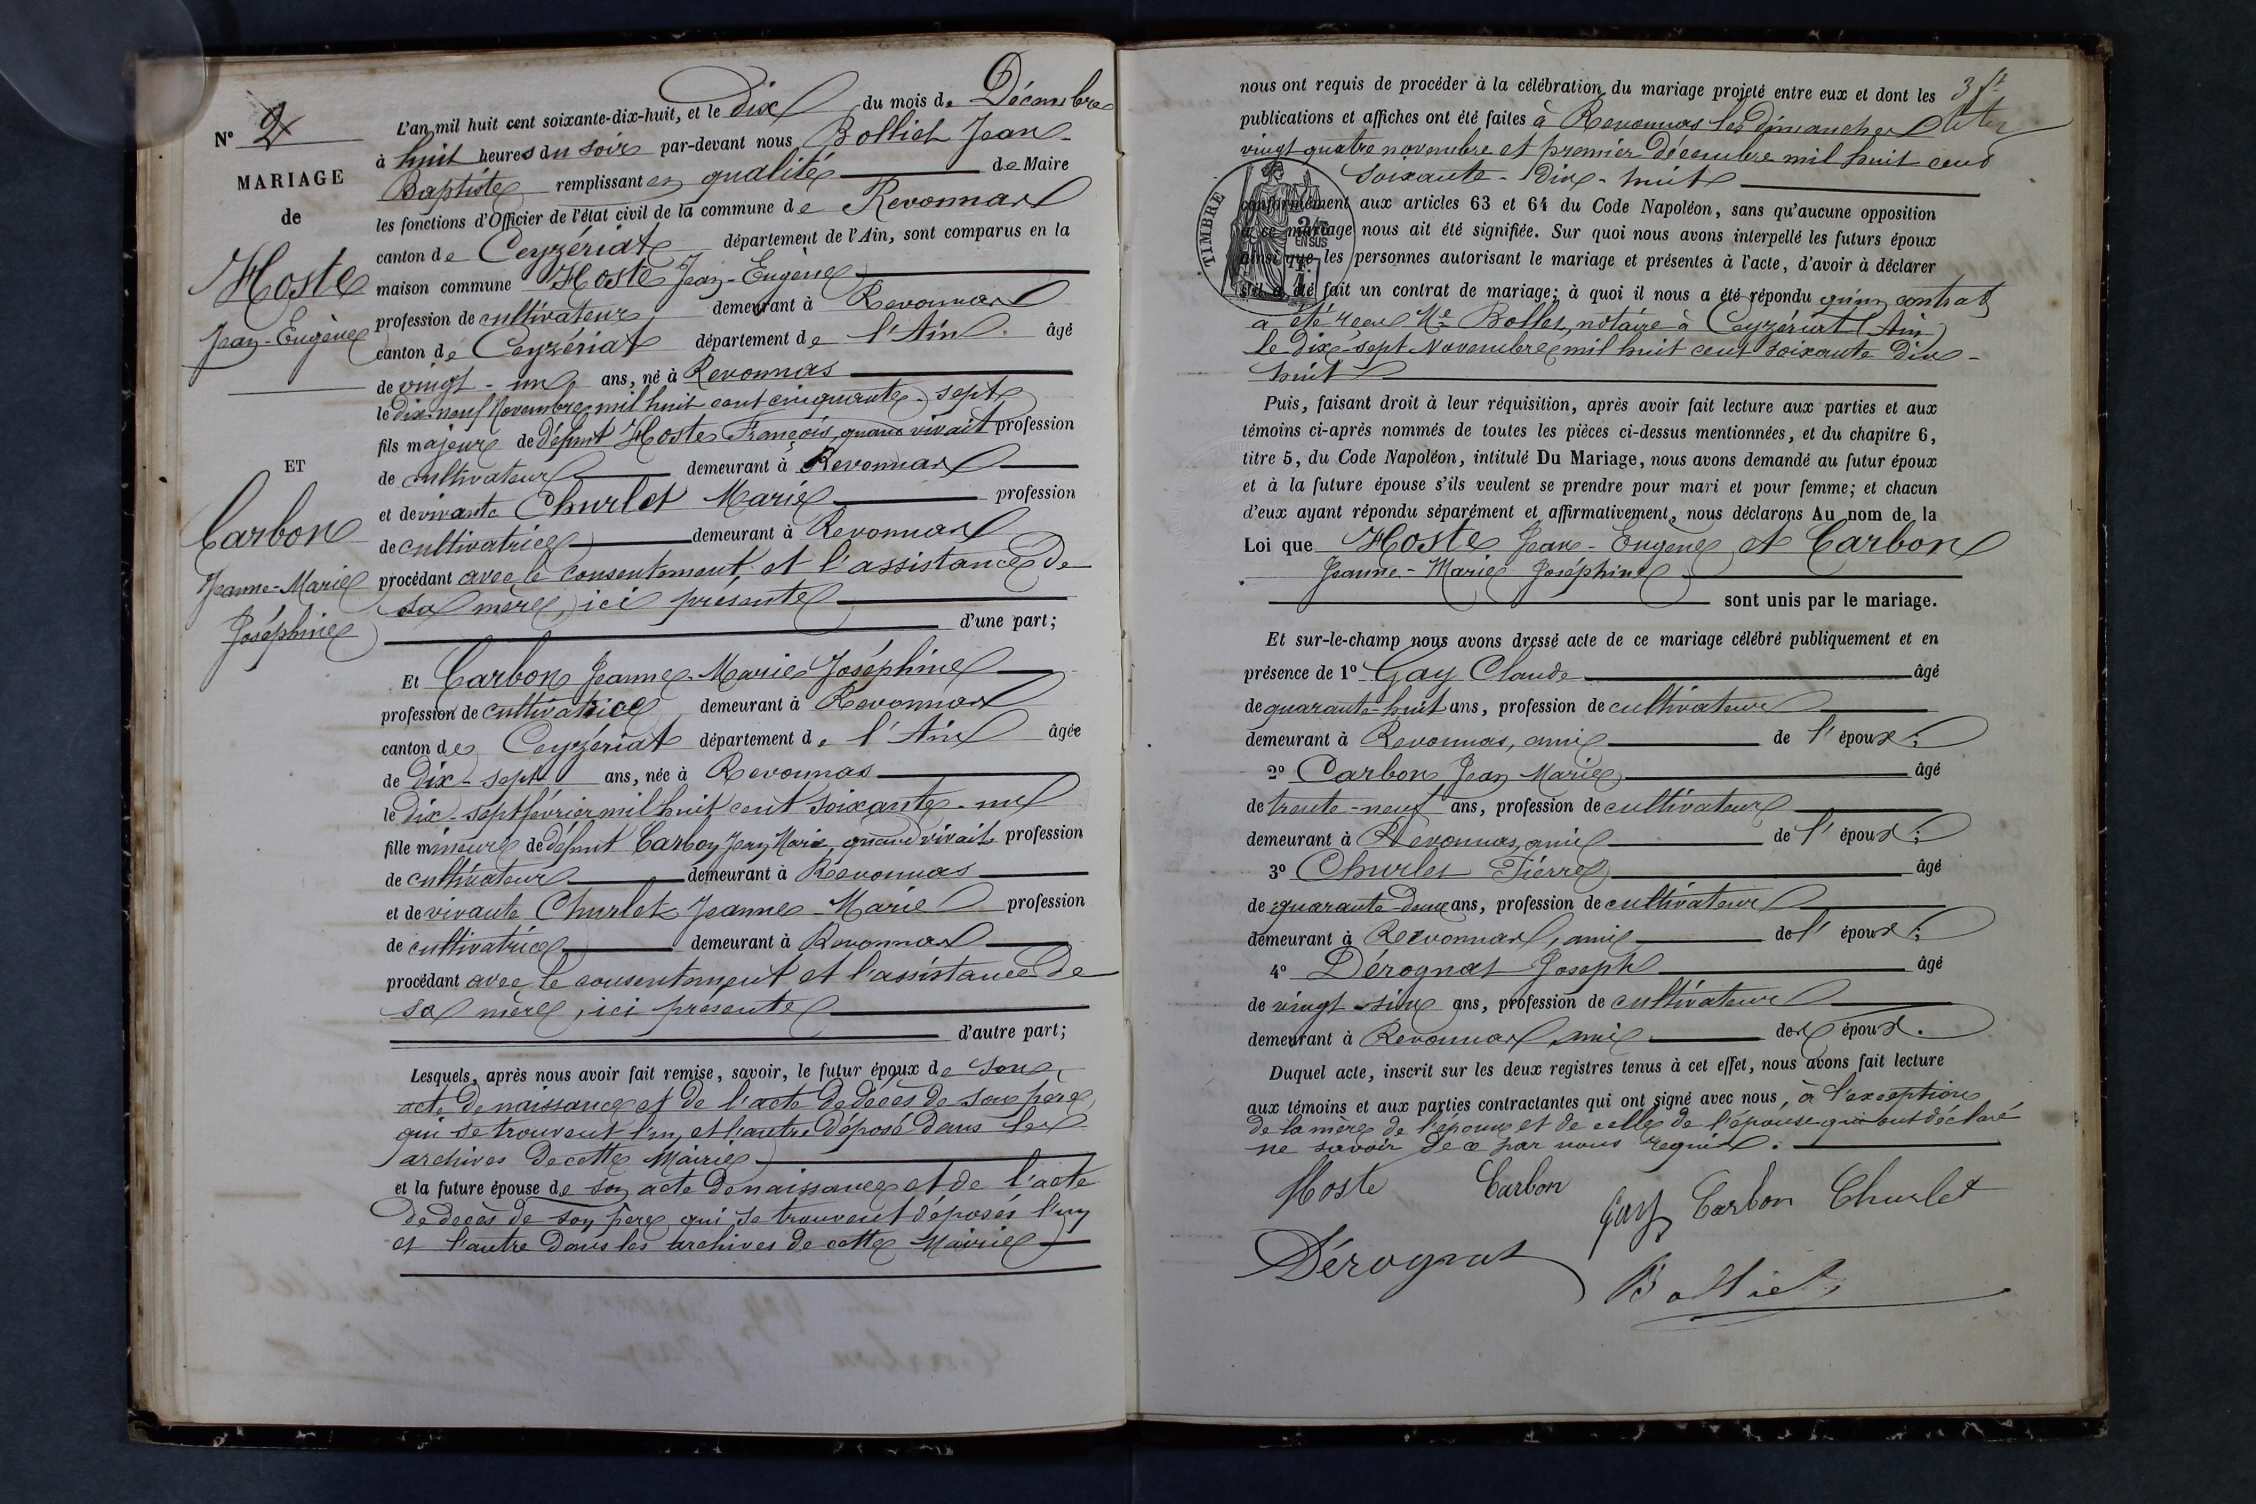 N° 2
MARIAGE
de
Hoste
Jean-Eugène
ET
Carbon
Jeanne-Marie
Joséphine
L'an mil huit cent soixante-dix-huit, et le dix du mois de Décembre
à huit heures du soir par-devant nous Bolliet Jean
Baptiste remplissant en qualité de Maire
les fonctions d'Officier de l'état civil de la commune de Revonnas
canton de Ceyzériat département de l'Ain, sont comparus en la
maison commune Hoste Jean-Eugène
profession de cultivateur demeurant à Revonnas
canton de Ceyzériat département de l'Ain âgé
de vingt-un ans, né à Revonnas
le dix-neuf Novembre mil huit cent cinquante-sept
fils majeur de défunt Hoste François, quand vivait profession
de cultivateur demeurant à Revonnas
et de vivante Churlet Marie profession
de cultivatrice demeurant à Revonnas
procédant avec le consentement et l'assistance de
sa mère, ici présente
d'une part;
Et Carbon Jeanne-Marie Joséphine
profession de cultivatrice demeurant à Revonnas
canton de Ceyzériat département de l'Ain âgée
de dix-sept ans, née à Revonnas
le dix-sept février mil huit cent soixante-un
fille mineure de défunt Carbon Jean Marie, quand vivait profession
de cultivateur demeurant à Revonnas
et de vivante Churlet Jeanne-Marie profession
de cultivatrice demeurant à Revonnas
procédant avec le consentement et l'assistance de
sa mère, ici présente
d'autre part;
Lesquels, après nous avoir fait remise, savoir, le futur époux de son
acte de naissance et de l'acte de décès de son père,
qui se trouvent l'un et l'autre déposé dans les
archives de cette Mairie
et la future épouse de son acte de naissance et de l'acte
de décès de son père, qui se trouvent déposés l'un
et l'autre dans les archives de cette Mairie
nous ont requis de procéder à la célébration du mariage projeté entre eux et dont les
publications et affiches ont été faites à Revonnas les dimanches
vingt quatre novembre et premier décembre mil huit cent
soixante-dix-huit
TIMBRE
EN SUS
conformément aux articles 63 et 64 du Code Napoléon, sans qu'aucune opposition
à ce mariage nous ait été signifiée. Sur quoi nous avons interpellé les futurs époux
ainsi que les personnes autorisant le mariage et présentes à l'acte, d'avoir à déclarer
s'il a été fait un contrat de mariage; à quoi il nous a été répondu qu'un contrat
a été reçu Me Bollet, notaire à Ceyzériat (Ain)
le dix-sept Novembre mil huit cent soixante dix-
huit
Puis, faisant droit à leur réquisition, après avoir fait lecture aux parties et aux
témoins ci-après nommés de toutes les pièces ci-dessus mentionnées, et du chapitre 6,
titre 5, du Code Napoléon, intitulé Du Mariage, nous avons demandé au futur époux
et à la future épouse s'ils veulent se prendre pour mari et pour femme; et chacun
d'eux ayant répondu séparément et affirmativement, nous déclarons Au nom de la
Loi que Hoste Jean-Eugène et Carbon
Jeanne-Marie Joséphine
sont unis par le mariage.
Et sur-le-champ nous avons dressé acte de ce mariage célébré publiquement et en
présence de 1° Gay Claude âgé
de quarante-huit ans, profession de cultivateur
demeurant à Revonnas, ami de l'époux;
2° Carbon Jean Marie âgé
de trente-neuf ans, profession de cultivateur
demeurant à Revonnas, ami de l'époux;
3° Churlet Pierre âgé
de quarante-deux ans, profession de cultivateur
demeurant à Revonnas, ami de l'époux;
4° Dérognat Joseph âgé
de vingt-six ans, profession de cultivateur
demeurant à Revonnas, ami des époux.
Duquel acte, inscrit sur les deux registres tenus à cet effet, nous avons fait lecture
aux témoins et aux parties contractantes qui ont signé avec nous, à l'exception
de la mère de l'époux et de celle de l'épouse qui ont déclaré
ne savoir de ce par nous requis.
Hoste Carbon Gay Carbon Churlet
Dérognat Bolliet